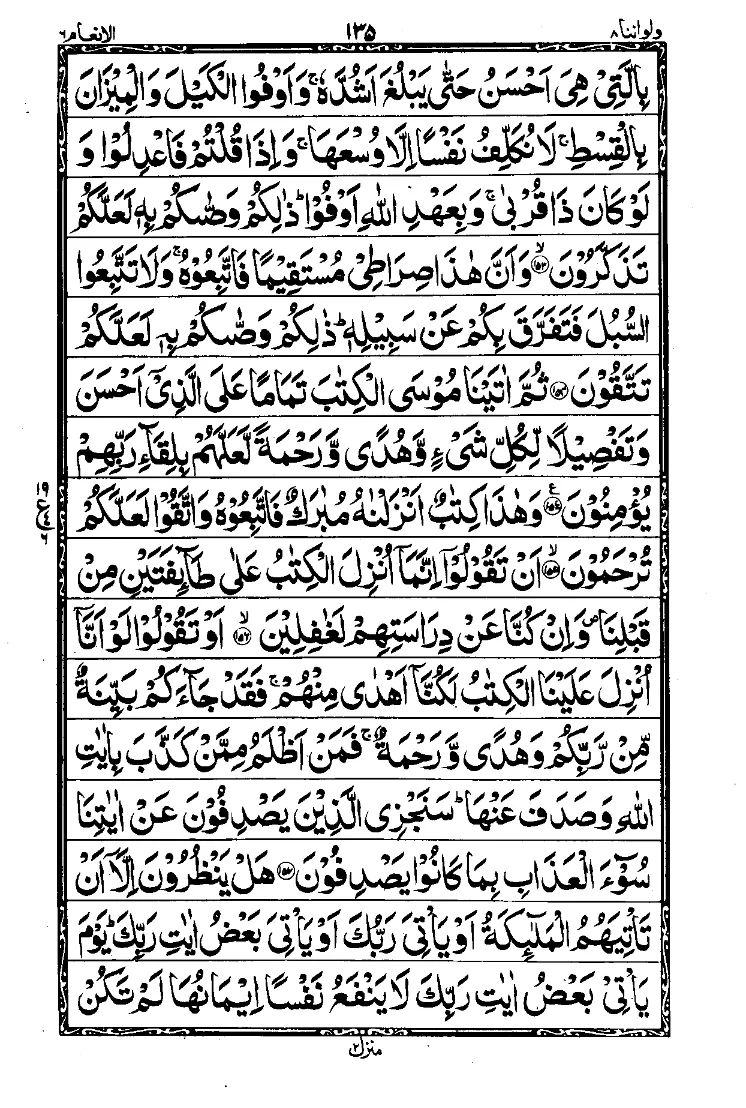 ولواننا ٨
١٣٥
الانعام ٦
بِالَّتِيْ هِيَ اَحْسَنُ حَتّٰى يَبْلُغَ اَشُدَّهٗ ۚ وَاَوْفُوا الْكَيْلَ وَالْمِيْزَانَ
بِالْقِسْطِ ۚ لَا نُكَلِّفُ نَفْسًا اِلَّا وُسْعَهَا ۚ وَاِذَا قُلْتُمْ فَاعْدِلُوْا وَ
لَوْ كَانَ ذَا قُرْبٰى ۚ وَبِعَهْدِ اللّٰهِ اَوْفُوْا ؕ ذٰلِكُمْ وَصّٰىكُمْ بِهٖ لَعَلَّكُمْ
تَذَكَّرُوْنَ ۙ‏﴿١٥٢﴾ وَاَنَّ هٰذَا صِرَاطِيْ مُسْتَقِيْمًا فَاتَّبِعُوْهُ ۚ وَلَا تَتَّبِعُوا
السُّبُلَ فَتَفَرَّقَ بِكُمْ عَنْ سَبِيْلِهٖ ؕ ذٰلِكُمْ وَصّٰىكُمْ بِهٖ لَعَلَّكُمْ
تَتَّقُوْنَ ﴿١٥٣﴾ ثُمَّ اٰتَيْنَا مُوْسَى الْكِتٰبَ تَمَامًا عَلَى الَّذِيْۤ اَحْسَنَ
وَتَفْصِيْلًا لِّكُلِّ شَيْءٍ وَّهُدًى وَّرَحْمَةً لَّعَلَّهُمْ بِلِقَآءِ رَبِّهِمْ
يُؤْمِنُوْنَ ﴿١٥٤﴾ ع وَهٰذَا كِتٰبٌ اَنْزَلْنٰهُ مُبٰرَكٌ فَاتَّبِعُوْهُ وَاتَّقُوْا لَعَلَّكُمْ
تُرْحَمُوْنَ ۙ﴿١٥٥﴾ اَنْ تَقُوْلُوْۤا اِنَّمَاۤ اُنْزِلَ الْكِتٰبُ عَلٰى طَآئِفَتَيْنِ مِنْ
قَبْلِنَا ۪ وَاِنْ كُنَّا عَنْ دِرَاسَتِهِمْ لَغٰفِلِيْنَ ۙ﴿١٥٦﴾ اَوْ تَقُوْلُوْا لَوْ اَنَّاۤ
اُنْزِلَ عَلَيْنَا الْكِتٰبُ لَكُنَّاۤ اَهْدٰى مِنْهُمْ ۚ فَقَدْ جَآءَكُمْ بَيِّنَةٌ
مِّنْ رَّبِّكُمْ وَهُدًى وَّرَحْمَةٌ ۚ فَمَنْ اَظْلَمُ مِمَّنْ كَذَّبَ بِاٰيٰتِ
اللّٰهِ وَصَدَفَ عَنْهَا ؕ سَنَجْزِى الَّذِيْنَ يَصْدِفُوْنَ عَنْ اٰيٰتِنَا
سُوْٓءَ الْعَذَابِ بِمَا كَانُوْا يَصْدِفُوْنَ ﴿١٥٧﴾ هَلْ يَنْظُرُوْنَ اِلَّاۤ اَنْ
تَاْتِيَهُمُ الْمَلٰٓئِكَةُ اَوْ يَاْتِيَ رَبُّكَ اَوْ يَاْتِيَ بَعْضُ اٰيٰتِ رَبِّكَ ؕ يَوْمَ
يَاْتِيْ بَعْضُ اٰيٰتِ رَبِّكَ لَا يَنْفَعُ نَفْسًا اِيْمَانُهَا لَمْ تَكُنْ
منزل ٢